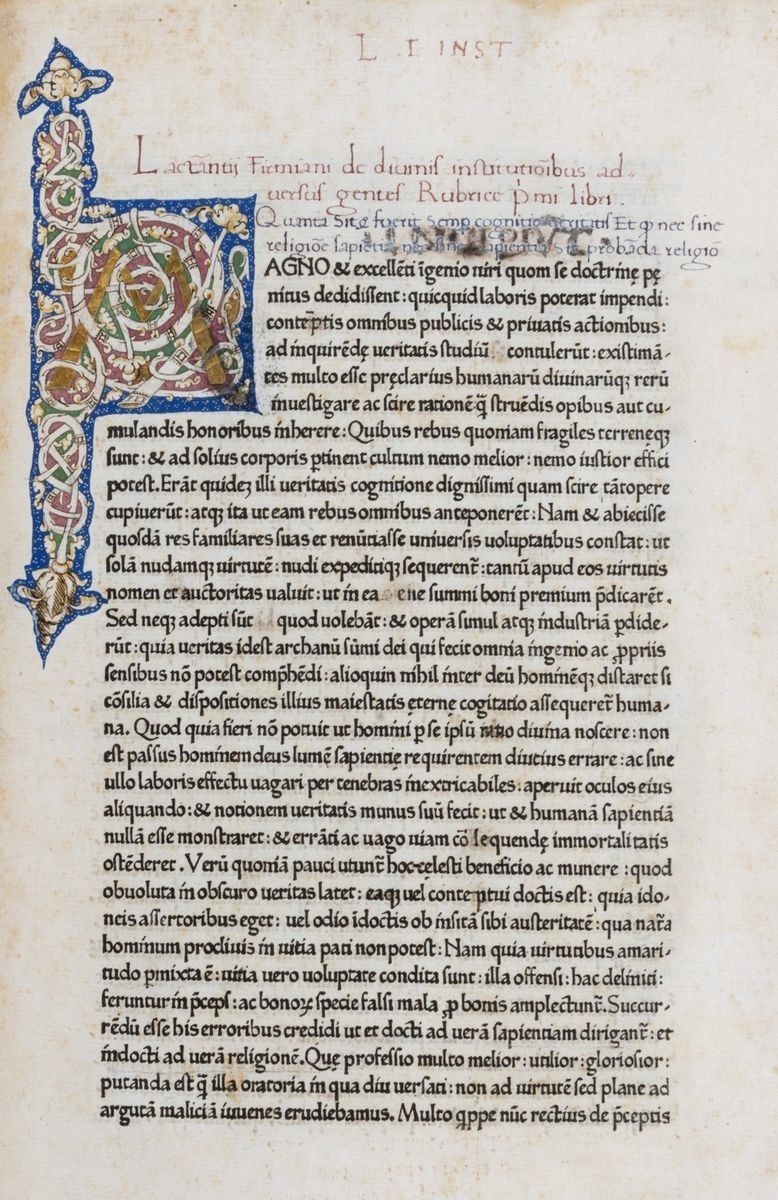 L I INST
Lactantii Firmiani de diuinis institutiōibus ad-
uersus gentes Rubrice p̄mi libri.
Quanta Sit & fuerit Semp cognitio ueritatis Et q nec sine
religiōe sapiētia nec sine sapientia Sit probāda religio
AGNO & excellēti īgenio uiri quom se doctrinę pę
nitus dedidissent: quicquid laboris poterat impendi:
contēptis omnibus publicis & priuatis actionibus:
ad inquirēdę ueritatis studiū contulerūt: existimā-
tes multo esse pręclarius humanarū diuinarūq; rerū
inuestigare ac scire rationē q̄ struēdis opibus aut cu-
mulandis honoribus inherere: Quibus rebus quoniam fragiles terreneq;
sunt: & ad solius corporis ꝑtinent cultum nemo melior: nemo iustior effici
potest. Erāt quidez illi ueritatis cognitione dignissimi quam scire tātopere
cupiuerūt: atq; ita ut eam rebus omnibus anteponerēt: Nam & abiecisse
quosdā res familiares suas et renūtiasse uniuersis uoluptatibus constat: ut
solā nudamq; uirtutē: nudi expeditiq; sequerent̄: tantū apud eos uirtutis
nomen et auctoritas ualuit: ut in ea ene summi boni premium p̄dicarēt.
Sed neq; adepti sūt quod uolebāt: & operā simul atq; industriā ꝑdide-
rūt: quia ueritas idest archanū sūmi dei qui fecit omnia ingenio ac ꝓpriis
sensibus nō potest comp̄hēdi: alioquin nihil inter deū hominēq; distaret si
cōsilia & dispositiones illius maiestatis eternę cogitatio assequeret̄ huma-
na. Quod quia fieri nō potuit ut homini ꝑ se ipsū diuina noscere: non
est passus hominem deus lumē sapientię requirentem diutius errare: ac sine
ullo laboris effectu uagari per tenebras inextricabiles: aperuit oculos eius
aliquando: & notionem ueritatis munus suū fecit: ut & humanā sapientiā
nullā esse monstraret: & errāti ac uago uiam cōsequendę immortalitatis
ostēderet. Verū quoniā pauci utunt̄ hoc cęlesti beneficio ac munere: quod
obuoluta in obscuro ueritas latet: eaq; uel contēptui doctis est: quia ido-
neis assertoribus eget: uel odio īdoctis ob insitā sibi austeritatē: qua nat̄a
hominum procliuis in uitia pati non potest: Nam quia uirtutibus amari-
tudo ꝑmixta ē: uitia uero uoluptate condita sunt: illa offensi: hac deliniti:
feruntur in p̄ceps: ac bonoꝝ specie falsi mala ꝓ bonis amplectunt̄. Succur-
rēdū esse his erroribus credidi ut et docti ad uerā sapientiam dirigant̄: et
indocti ad uerā religionē. Quę professio multo melior: utilior: gloriosior:
putanda est q̄ illa oratoria in qua diu uersati: non ad uirtutē sed plane ad
argutā maliciā iuuenes erudiebamus. Multo q̄ppe nūc rectius de p̄ceptis